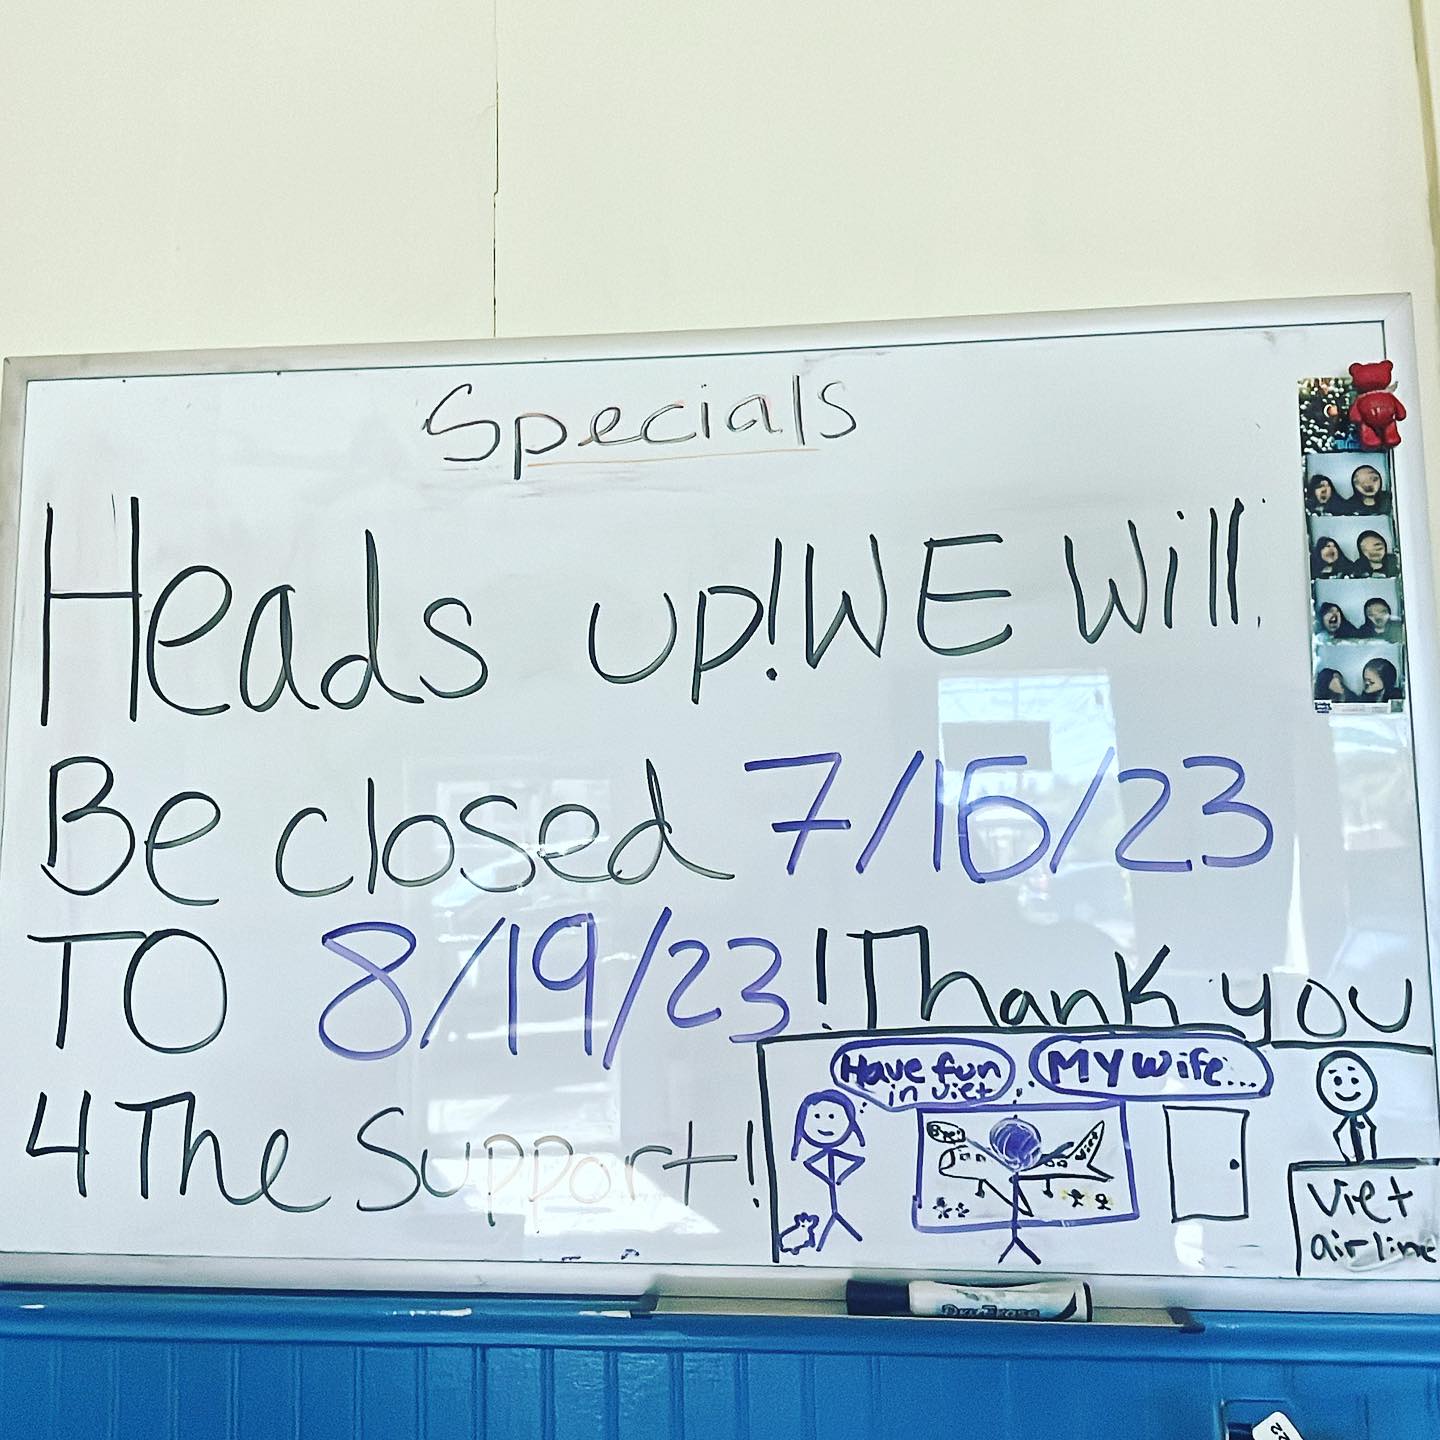 Specials
Heads up! WE Will
Be closed 7/16/23
TO 8/19/23! Thank you
4 The Support!
Have fun
in viet
MY wife...
Bye!
Viet
airline
Dry Erase